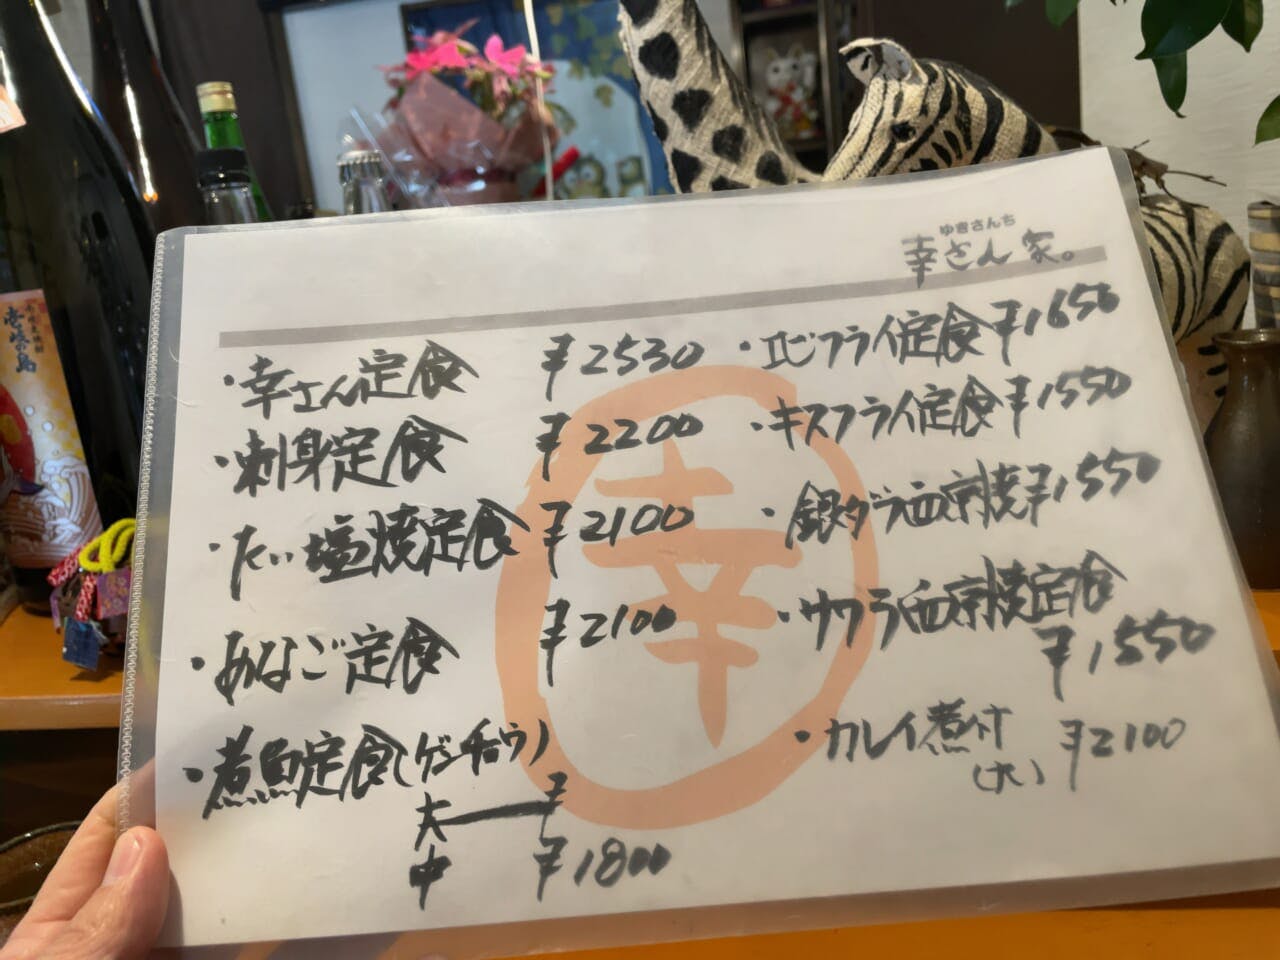 ゆきさんち
幸さん家。
・幸さん定食 ¥2530
・刺身定食 ¥2200
・たい塩焼定食 ¥2100
・あなご定食 ¥2100
・煮魚定食(ゲンチョウ)
大 ¥
中 ¥1800
・エビフライ定食 ¥1650
・キスフライ定食 ¥1550
・銀ダラ西京焼 ¥1550
・サワラ西京焼定食
¥1550
・カレイ煮付 ¥2100
(大)
幸
壱岐の島